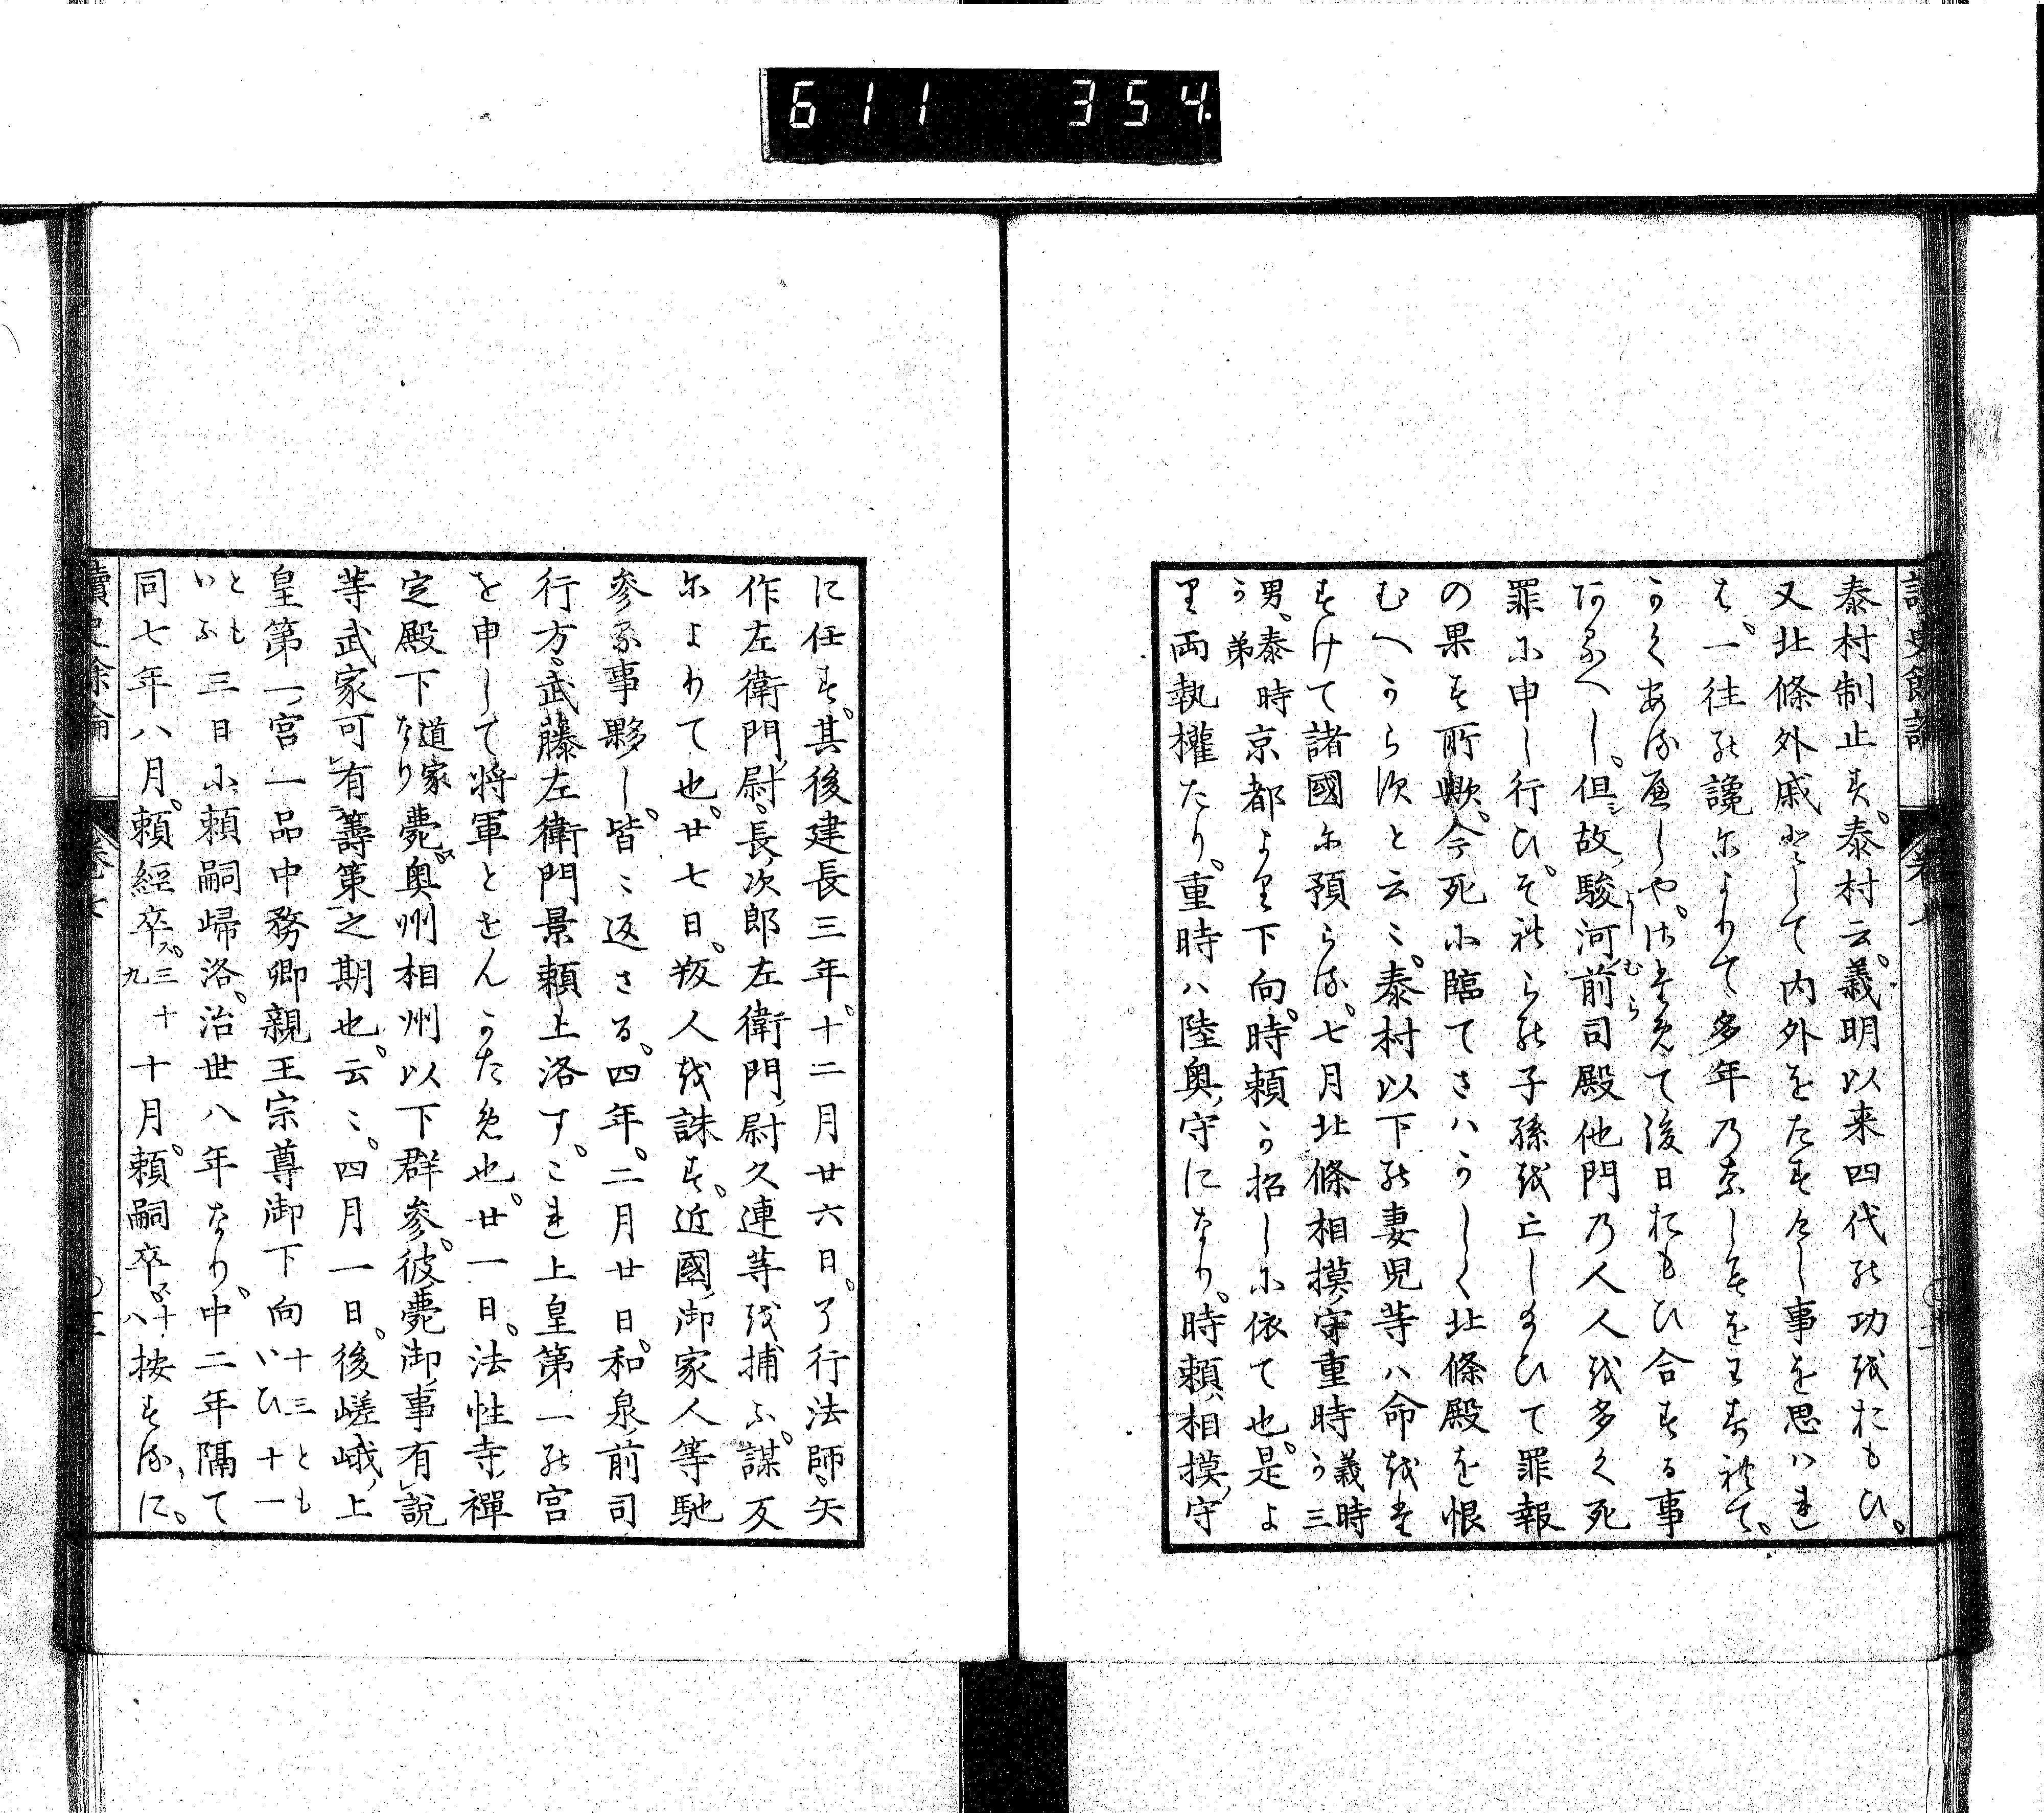 611 354
讀史餘論
泰村制止す。泰村云。義明以来四代の功をおもひ。
又北條外戚として内外をたすけし事を思はれ
は。一往の讒によりて多年のよしみをわすれて。
かくあるへしや。さためて後日おもひ合する事
あるへし。但シ故駿河前司殿他門の人人を多く死
よし むら
罪に申し行ひ。それらの子孫を亡したまひて罪報
の果す所歟。今死に臨てさはかしく北條殿を恨
むへからすと云〻。泰村以下の妻児等ハ命をた
すけて諸國に預らる。七月北條相摸守重時義時か三
男。泰時か弟京都より下向。時頼か招しに依て也。是よ
り両執權たり。重時ハ陸奥守になり。時頼相摸守
に任す。其後建長三年。十二月廿六日。了行法師矢
作左衛門尉。長次郎左衛門尉久連等を捕ふ。謀反
によりて也。廿七日。叛人を誅す。近國御家人等馳
参る事夥し。皆〻返さる。四年。二月廿日。和泉前司
行方。武藤左衛門景頼上洛す。これ上皇第一の宮
を申して将軍とせんかため也。廿一日。法性寺禪
定殿下道家なり薨ス。奥州相州以下群参。彼薨御事有説
等武家可有籌策之期也。云〻。四月一日。後嵯峨上
皇第一宮一品中務卿親王宗尊御下向十三ともいひ十一
ともいふ三日に頼嗣歸洛。治世八年なり。中二年隔て
同七年八月。頼經卒ス三十九十月。頼嗣卒ス十八按するに。
讀史餘論
卷七